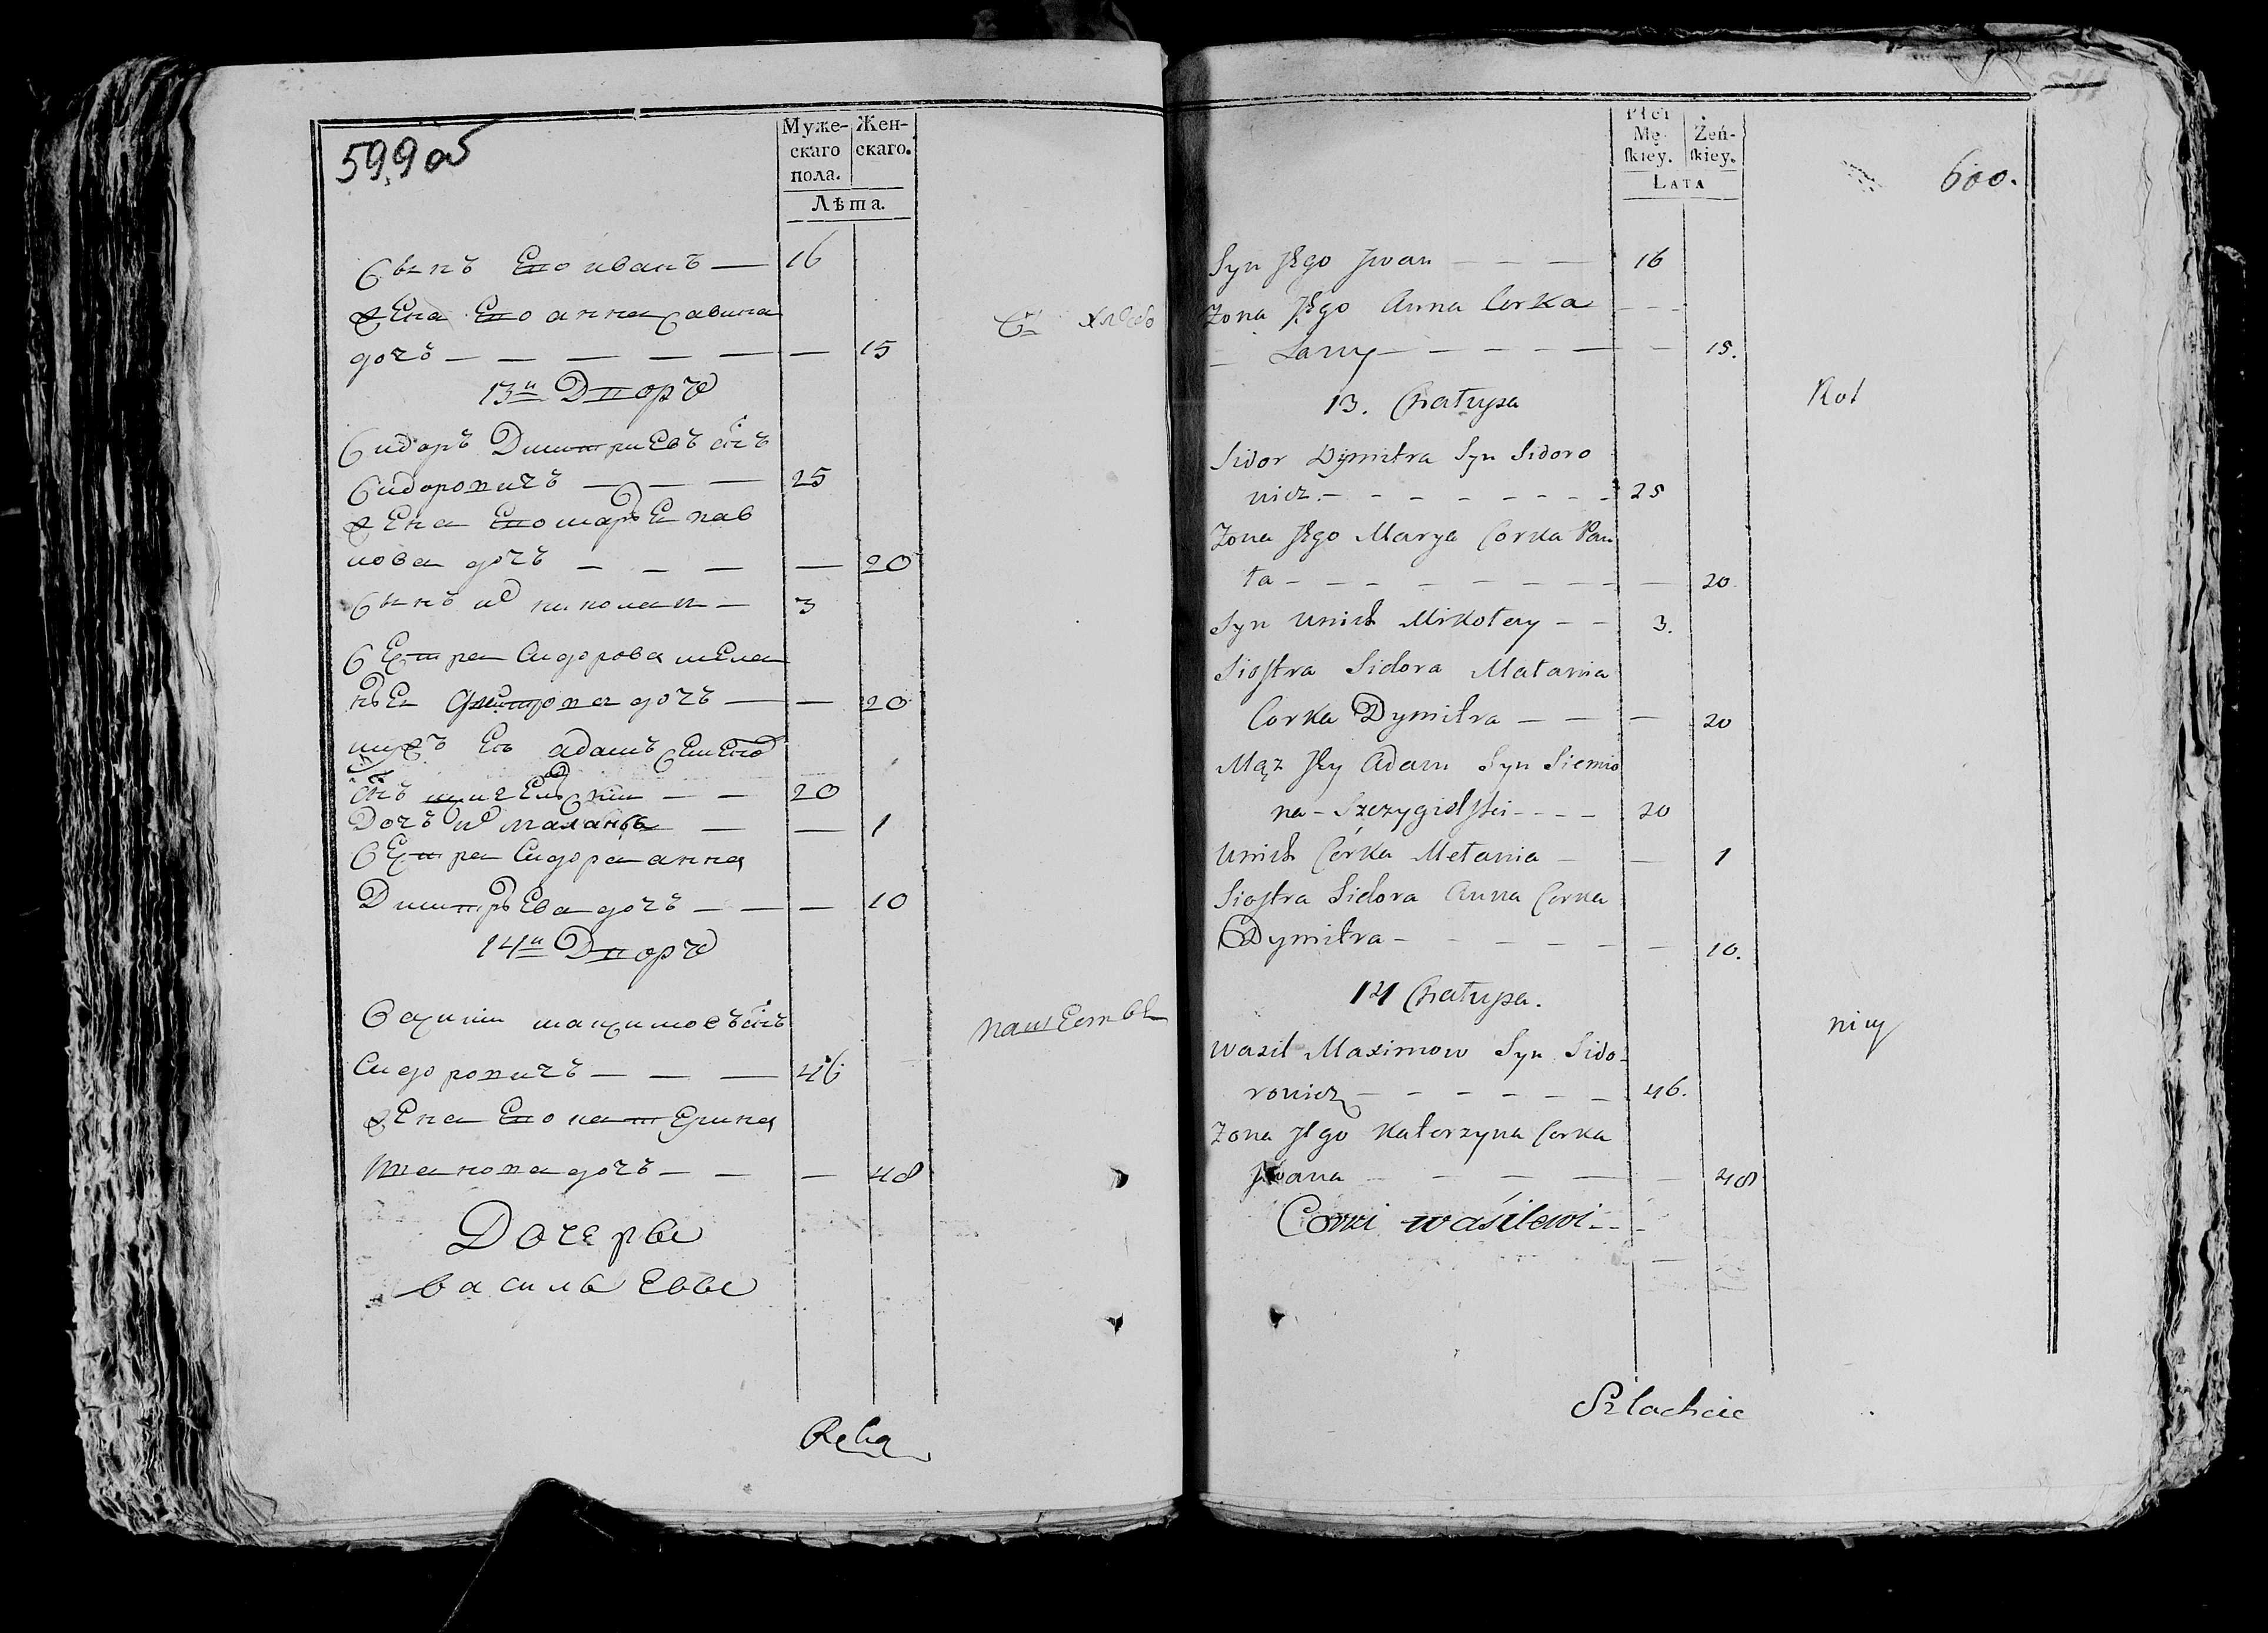 599 об
Муже- Жен-
скаго скаго.
пола.
Лѣта.
Сынъ Его иванъ — 16
жена Его анна савина
дочъ — — — — — — 15
13й Дворъ
Сидоръ Дмитриевъ снъ
Сидоровичъ — — — 25
жена Его марья пав
лова дочъ — — — — 20
Сынъ их николай — 3
Сестра Сидорова мела
нья Дмитрова дочъ — — 20
мужъ Ея адамъ семено
снъ щигельски — — 20
Дочъ их маланья — — 1
Сестра Сидора анна
Дмитрьева дочъ — — — 10
14й Дворъ
Василий максимовъ снъ
Сидоровичъ — — — 46
жена Его катерина
иванова дочъ — — — 48
Дочерьи
васильевы
Płci
Mę- Żeń-
ſkiey. ſkiey.
Lata
600.
Syn Jego Jwan — — — 16
Zona Jego Anna Corka — —
— Sawy — — — — — — 15.
13. Chałupa
Sidor Dymitra Syn Sidoro
wicz. - - - - - - - 25
Zona Jego Marya Corka Paw
ła - - - - - - - - — 20
Syn Unich Mikołay - - 3.
Siostra Sidora Małania
Corka Dymitra — — — 20
Mąz Jey Adam Syn Siemio
na - Szczygielski - - - - 20
Unich Córka Mełania — — 1
Siostra Sidora Anna Corka
Dymitra - - - - - - 10.
14 Chałupa.
Wasil Maximow Syn Sido-
rowicz - - - - - - 46.
Zona Jego Katerzyna Corka
Jwana — — — — — 48
Corki wasilewi - - -
Szlachcic